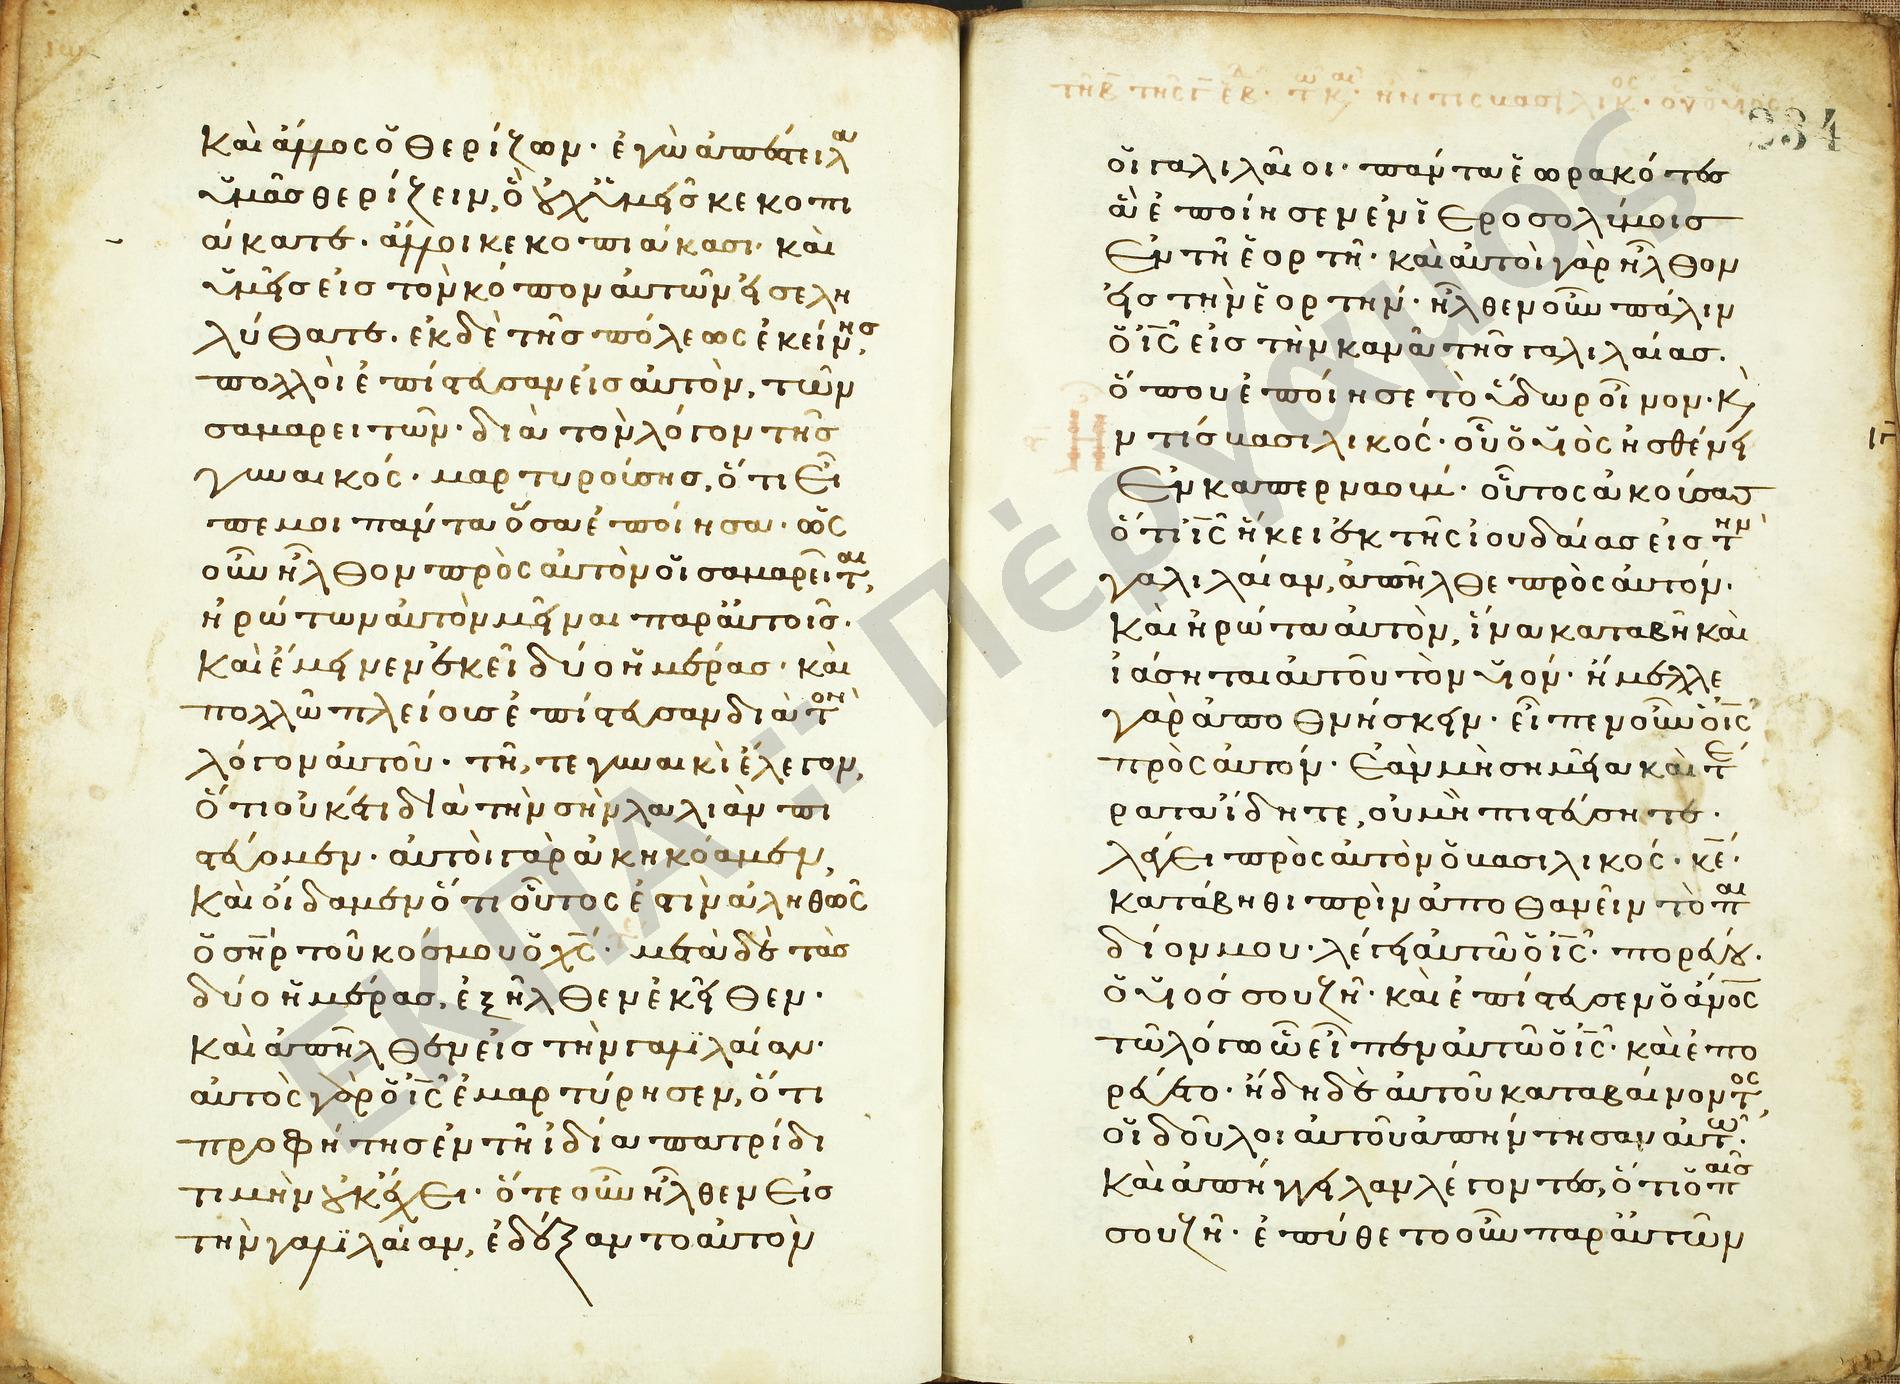 καὶ ἄλλος ὁ θερίζων· ἐγὼ ἀπέστειλα
ὑμᾶς θερίζειν, ὃ οὐχ ὑμεῖς κεκοπι
άκατε· ἄλλοι κεκοπιάκασι· καὶ
ὑμεῖς εἰς τὸν κόπον αὐτῶν εἰσελη
λύθατε. ἐκ δὲ τῆς πόλεως ἐκείνης,
πολλοὶ ἐπίστευσαν εἰς αὐτὸν, τῶν
σαμαρειτῶν· διὰ τὸν λόγον τῆς
γυναικός· μαρτυρούσης, ὅτι εἶ
πε μοι πάντα ὅσα ἐποίησα· ὡς
οὖν ἦλθον πρὸς αὐτὸν οἱ σαμαρεῖται,
ἠρώτων αὐτὸν μεῖναι παρ' αὐτοῖς·
καὶ ἔμεινεν ἐκεῖ δύο ἡμέρας· καὶ
πολλῶ πλείους ἐπίστευσαν διὰ τὸν
λόγον αὐτοῦ· τῆ, τε γυναικὶ ἔλεγον,
ὅτι οὐκέτι διὰ τὴν σὴν λαλιὰν πι
στεύομεν· αὐτοὶ γὰρ ἀκηκόαμεν,
καὶ οἴδαμεν ὅτι οὗτος ἐστὶν ἀληθῶς
ὁ σηρ τοῦ κόσμου ὁ χς· μετὰ δὲ τὰς
δύο ἡμέρας, ἐξῆλθεν ἐκεῖθεν·
καὶ ἀπῆλθεν εἰς τὴν γαλιλαίαν·
αὐτὸς γὰρ ὁ ις ἐμαρτύρησεν, ὅτι
προφήτης ἐν τῆ ἰδία πατρίδι
τιμὴν οὐκ ἔχει· ὅτε οὖν ἦλθεν εἰς
τὴν γαλιλαίαν, ἐδέξαντο αὐτὸν
334
οἱ γαλιλαῖοι· πάντα ἑωρακότες
ἃ ἐποίησεν ἐν ἱεροσολύμοις
ἐν τῆ ἑορτῆ· καὶ αὐτοὶ γὰρ ἦλθον
εἰς τὴν ἑορτήν· ἦλθεν οὖν πάλιν
ὁ ις εἰς τὴν κανᾶ τῆς γαλιλαίας.
ὅπου ἐποίησε τὸ ὕδωρ οἶνον· κὶ
ἦν τίς βασιλικός· οὗ ὁ υἱὸς ἠσθένει
ἐν καπερναούμ· οὗτος ἀκούσας
ὅτι ις ἥκει ἐκ τῆς ἰουδαίας εἰς τὴν
γαλιλαίαν, ἀπῆλθε πρὸς αὐτόν·
καὶ ἠρώτα αὐτὸν, ἵνα καταβῆ καὶ
ἰάσηται αὐτοῦ τὸν υἱόν· ἤμελλε
γὰρ ἀποθνήσκειν· εἶπεν οὖν ὁ ις
πρὸς αὐτόν· ἐὰν μὴ σημεῖα καὶ τέ
ρατα ἴδητε, οὐ μὴ πιστεύσητε·
λέγει πρὸς αὐτὸν ὁ βασιλικός· κε·
κατάβηθι πρὶν ἀποθανεῖν τὸ παι
δίον μου· λέγει αὐτῶ ὁ ις· πορεύου·
ὁ υἱός σου ζῆ· καὶ ἐπίστευσεν ὁ ανος
τῶ λόγω ὧ εἶπεν αὐτῶ ὁ ις· καὶ ἐπο
ρεύετο· ἤδη δὲ αὐτοῦ καταβαίνοντος,
οἱ δοῦλοι αὐτοῦ ἀπήντησαν αὐτῶ·
καὶ ἀπήγγειλαν λέγοντες, ὅτι ὁ παῖς
σου ζῆ· ἐπύθετο οὖν παρ' αὐτῶν
ΕΚΠΑ :: Πέργαμος